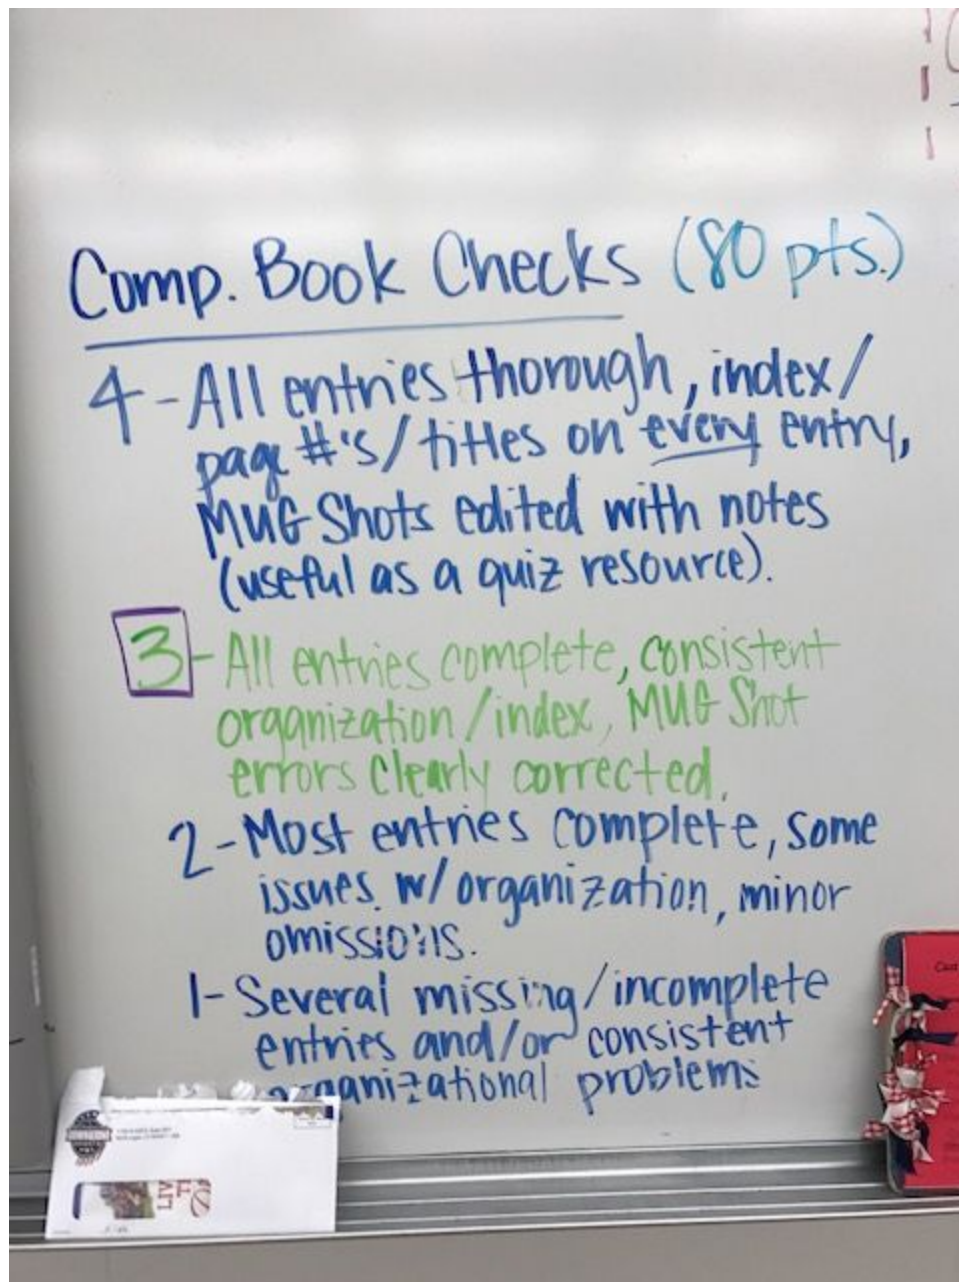 Comp. Book Checks (80 pts.)
4 - All entries thorough, index/
page #'s/titles on every entry,
MUG Shots edited with notes
(useful as a quiz resource).
3 - All entries complete, consistent
organization/index, MUG Shot
errors clearly corrected.
2 - Most entries complete, some
issues w/organization, minor
omissions.
1 - Several missing/incomplete
entries and/or consistent
organizational problems
LIV
FI